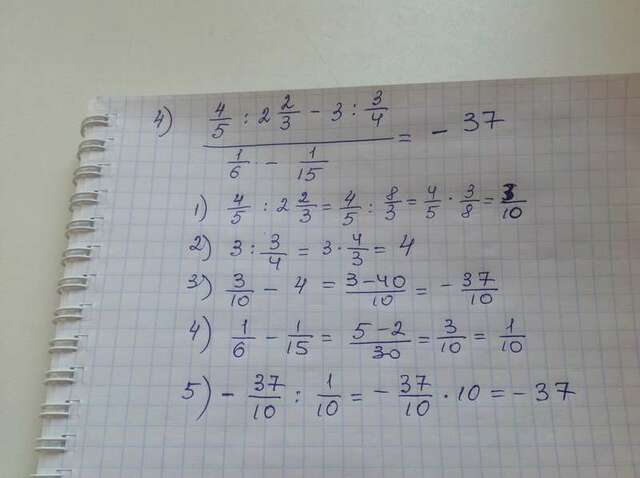 4) (4/5 : 2 2/3 - 3 : 3/4) / (1/6 - 1/15) = - 37
1) 4/5 : 2 2/3 = 4/5 : 8/3 = 4/5 · 3/8 = 3/10
2) 3 : 3/4 = 3 · 4/3 = 4
3) 3/10 - 4 = (3-40)/10 = - 37/10
4) 1/6 - 1/15 = (5-2)/30 = 3/10 = 1/10
5) - 37/10 : 1/10 = - 37/10 · 10 = - 37